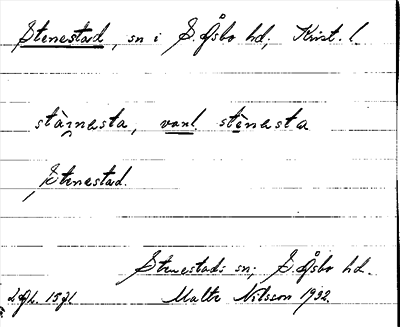 Stenestad, sn i S. Åsbo hd, Krist. l.
stàinesta, vanl. stènesta
Stenestad.
Stenestads sn; S. Åsbo hd.
Malte Nilsson 1932.